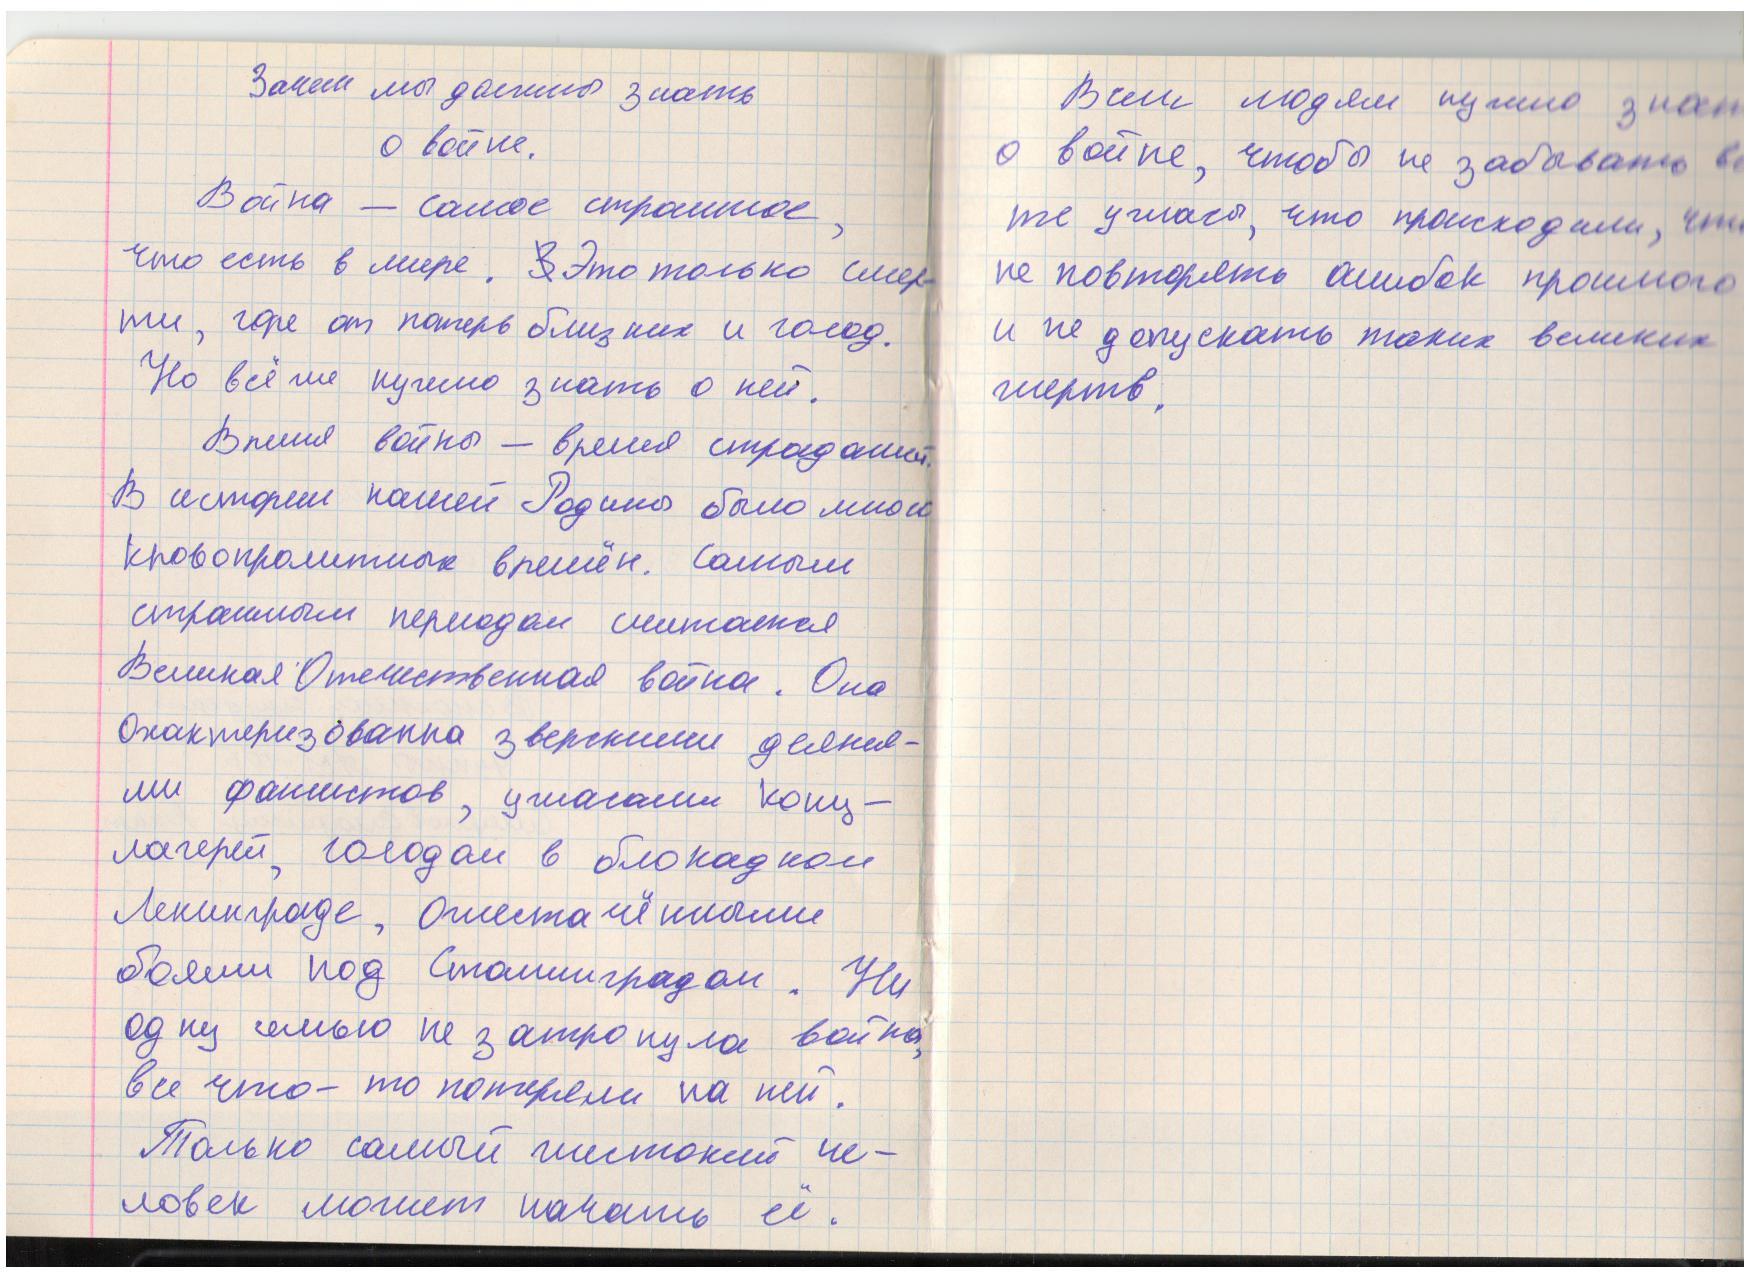 Зачем мы должны знать
о войне.
Война – самое страшное,
что есть в мире. Это только смер-
ти, горе от потерь близких и голод.
Но всё же нужно знать о ней.
Время войны – время страданий.
В истории нашей Родины было много
кровопролитных времён. Самым
страшным периодом считается
Великая Отечественная война. Она
охактеризованна зверскими деяния-
ми фашистов, ужасами конц-
лагерей, голодом в блокадном
Ленинграде, ожесточёнными
боями под Сталинградом. Ни
одну семью не затронула война,
все что-то потеряли на ней.
Только самый жестокий че-
ловек может начать её.
Всем людям нужно знать
о войне, чтобы не забывать все
те ужасы, что происходили, что
не повторять ошибок прошлого
и не допускать таких великих
жертв.